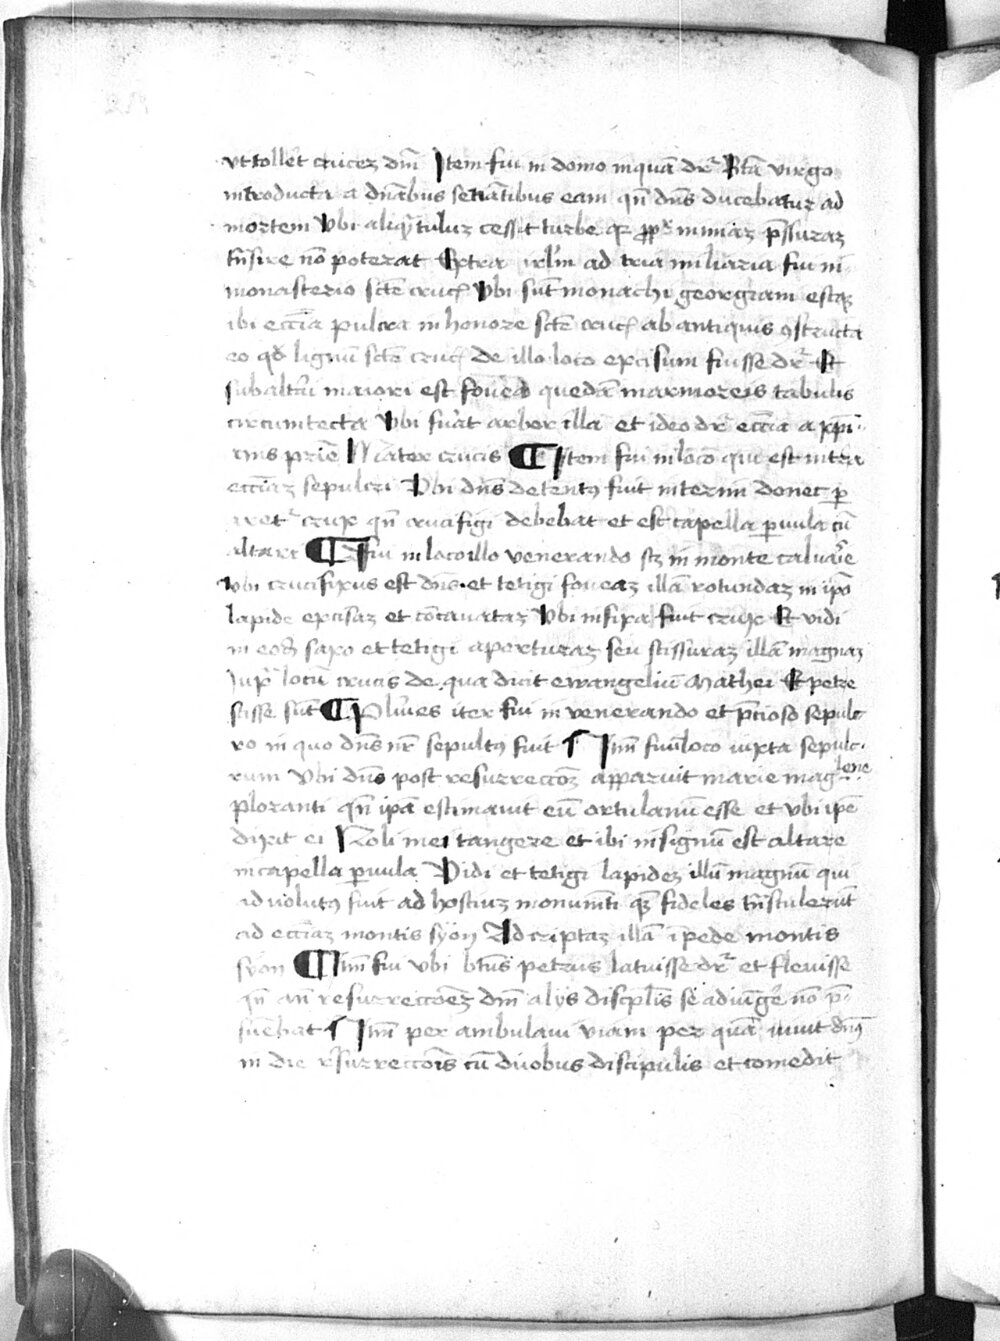 vt tolleret crucez dm̄ Item fui in domo in qua dr̄ Bt̄a virgo
introducta a dn̄abus seruātibus eam qn̄ dn̄s ducebatur ad
mortem Vbi aliqͣtuluz cessit turbe qꝛ ꝓpt̄ nimiaz p̄ssuraz
trn̄sire nō poterat Extra irl̄m ad tria miliaria fui in
monasterio sct̄e cruc̄ Vbi sūt monachi georgiani estqꝫ
ibi eccīa pulcra in honore sct̄e cruc̄ ab antiquis ꝯstructa
eo qd̓ lignū sct̄e cruc̄ de illo loco excisum fuisse dr̄ Et
sub altari maiori est fouea quedā marmoreis tabulis
circumtecta Vbi fuit arbor illa et ideo dr̄ eccīa a xp̄i-
anis pr̄ie Mater crucis ¶ Item fui in loco qui est intra
eccīaz sepulcri Vbi dn̄s detentꝰ fuit interim donec p̄
aret᷑ crux qn̄ crucifigi debebat et est capella ꝑuula cū
altari ¶ Fui in loco illo venerando sꝫ in monte caluarie
Vbi crucifixus est dn̄s et tetigi foueaz illā rotundaz in ip̄o
lapide excisaz et cōcauataz Vbi infixa fuit crux Et vidi
in eod̄ saxo et tetigi aperturaz seu scissuraz illā magnaz
iuxͣ locū crucis de qua dicit ewangeliū Mathei Et petre
scisse sūt ¶ Plur̄es iter fui in venerando et p̄cioso sepulc
ro in quo dn̄s nr̄ sepultꝰ fuit ¶ Itm̄ fui ī loco iuxta sepulc-
rum Vbi dn̄s post resurreccōꝫ apparuit marie magdalene
ploranti qn̄ ip̄a estimauit eū ortulanū esse et vbi ip̄e
dixit ei Noli mei tangere et ibi in signū est altare
in capella ꝑuula Vidi et tetigi lapidez illū magnū qui
aduolutꝰ fuit ad hostiuz monumēti quē fideles trn̄stulerūt
ad eccīaz montis syon Ad criptaz illā ī pede montis
syon ¶ Itm̄ fui vbi bt̄us petrus latuisse dr̄ et fleuisse
qn̄ an̄ resurreccōeꝫ dm̄ alijs discipl̄is se adiūge nō p̄-
sūebat ¶ Itm̄ per ambulaui viam per quā iuit dn̄s
in die resurreccōis cū duobus discipulis et comedit